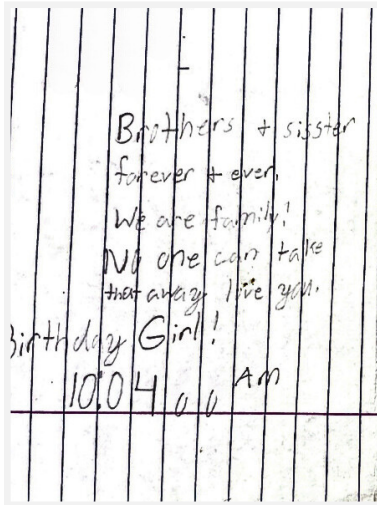 Brothers + sisster
forever + ever.
We are family!
No one can take
that away love you.
Birthday Girl!
10:04 00 AM